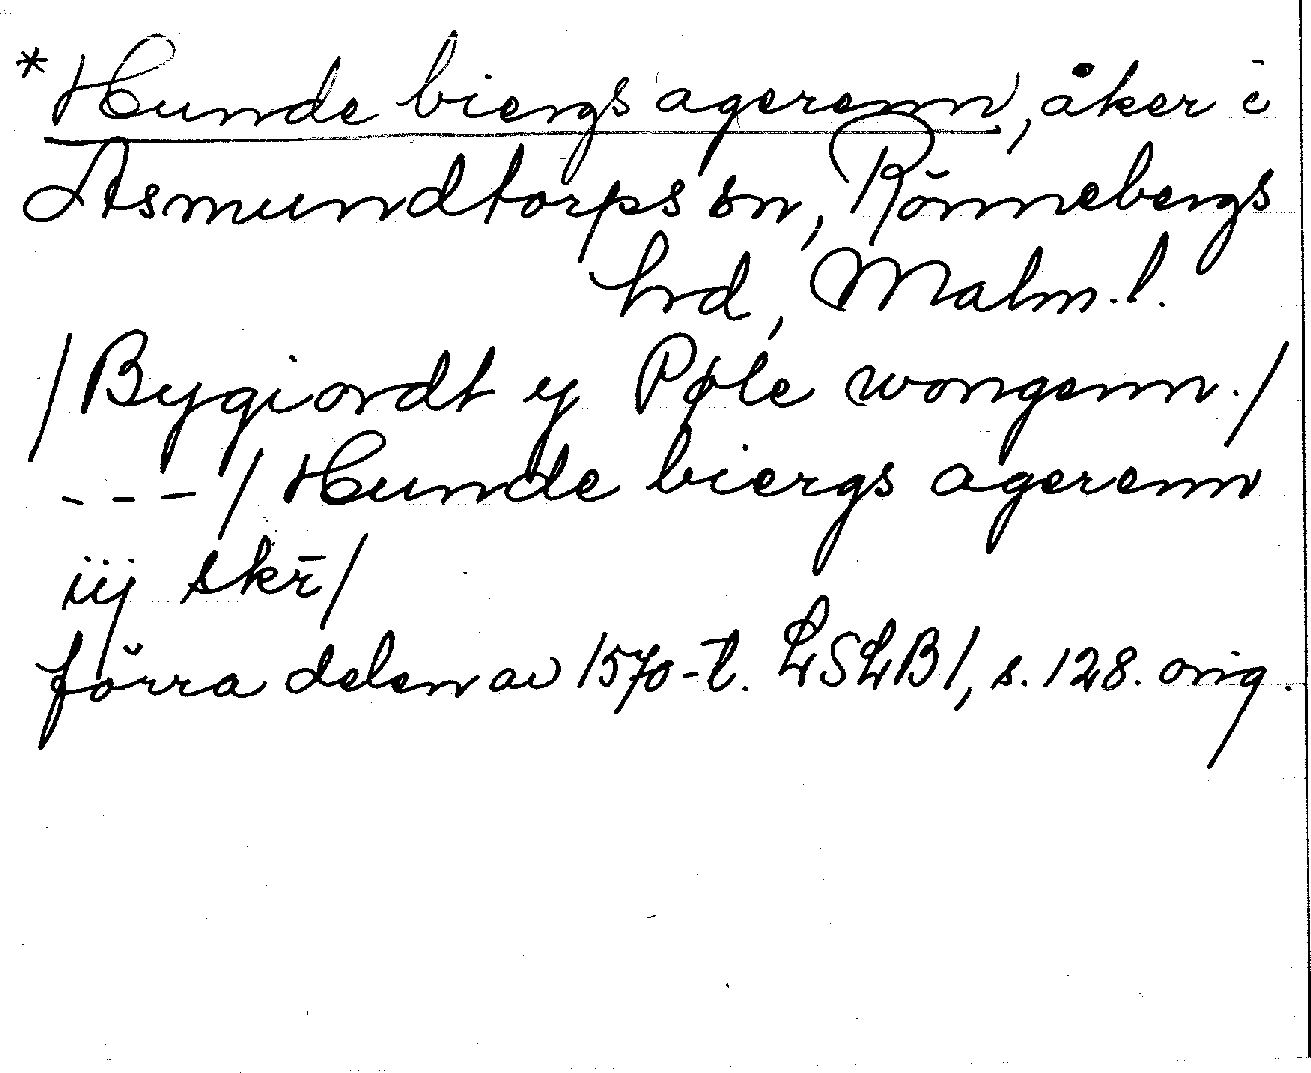 *Hunde biergs agerenn, åker i
Asmundtorps sn, Rönnebergs
hrd, Malm. l.
/Bygiordt y Pøle wongenn./
---/Hunde biergs agerenn
iij skr̄/
förra delen av 1570-t. LSLB1, s. 128. orig.